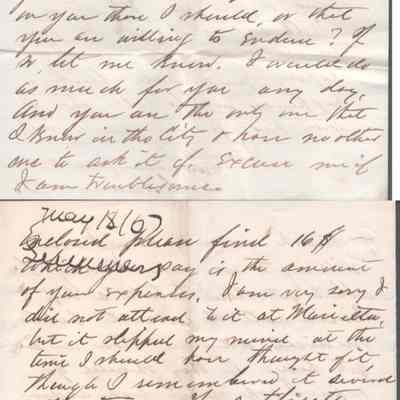 on you than I should, or that
you are willing to endure? If
so let me know. I would do
as much for you any day.
And you are the only one that
I know in the City & have no other
one to ask it of. Excuse me if
I am troublesome.
May 18/67
Enclosed please find 16$
which pay is the amount
of your expenses. I am very sorry I
did not attend to it at Marietta,
but it slipped my mind at the
time I should have thought of it,
though I remembered it several